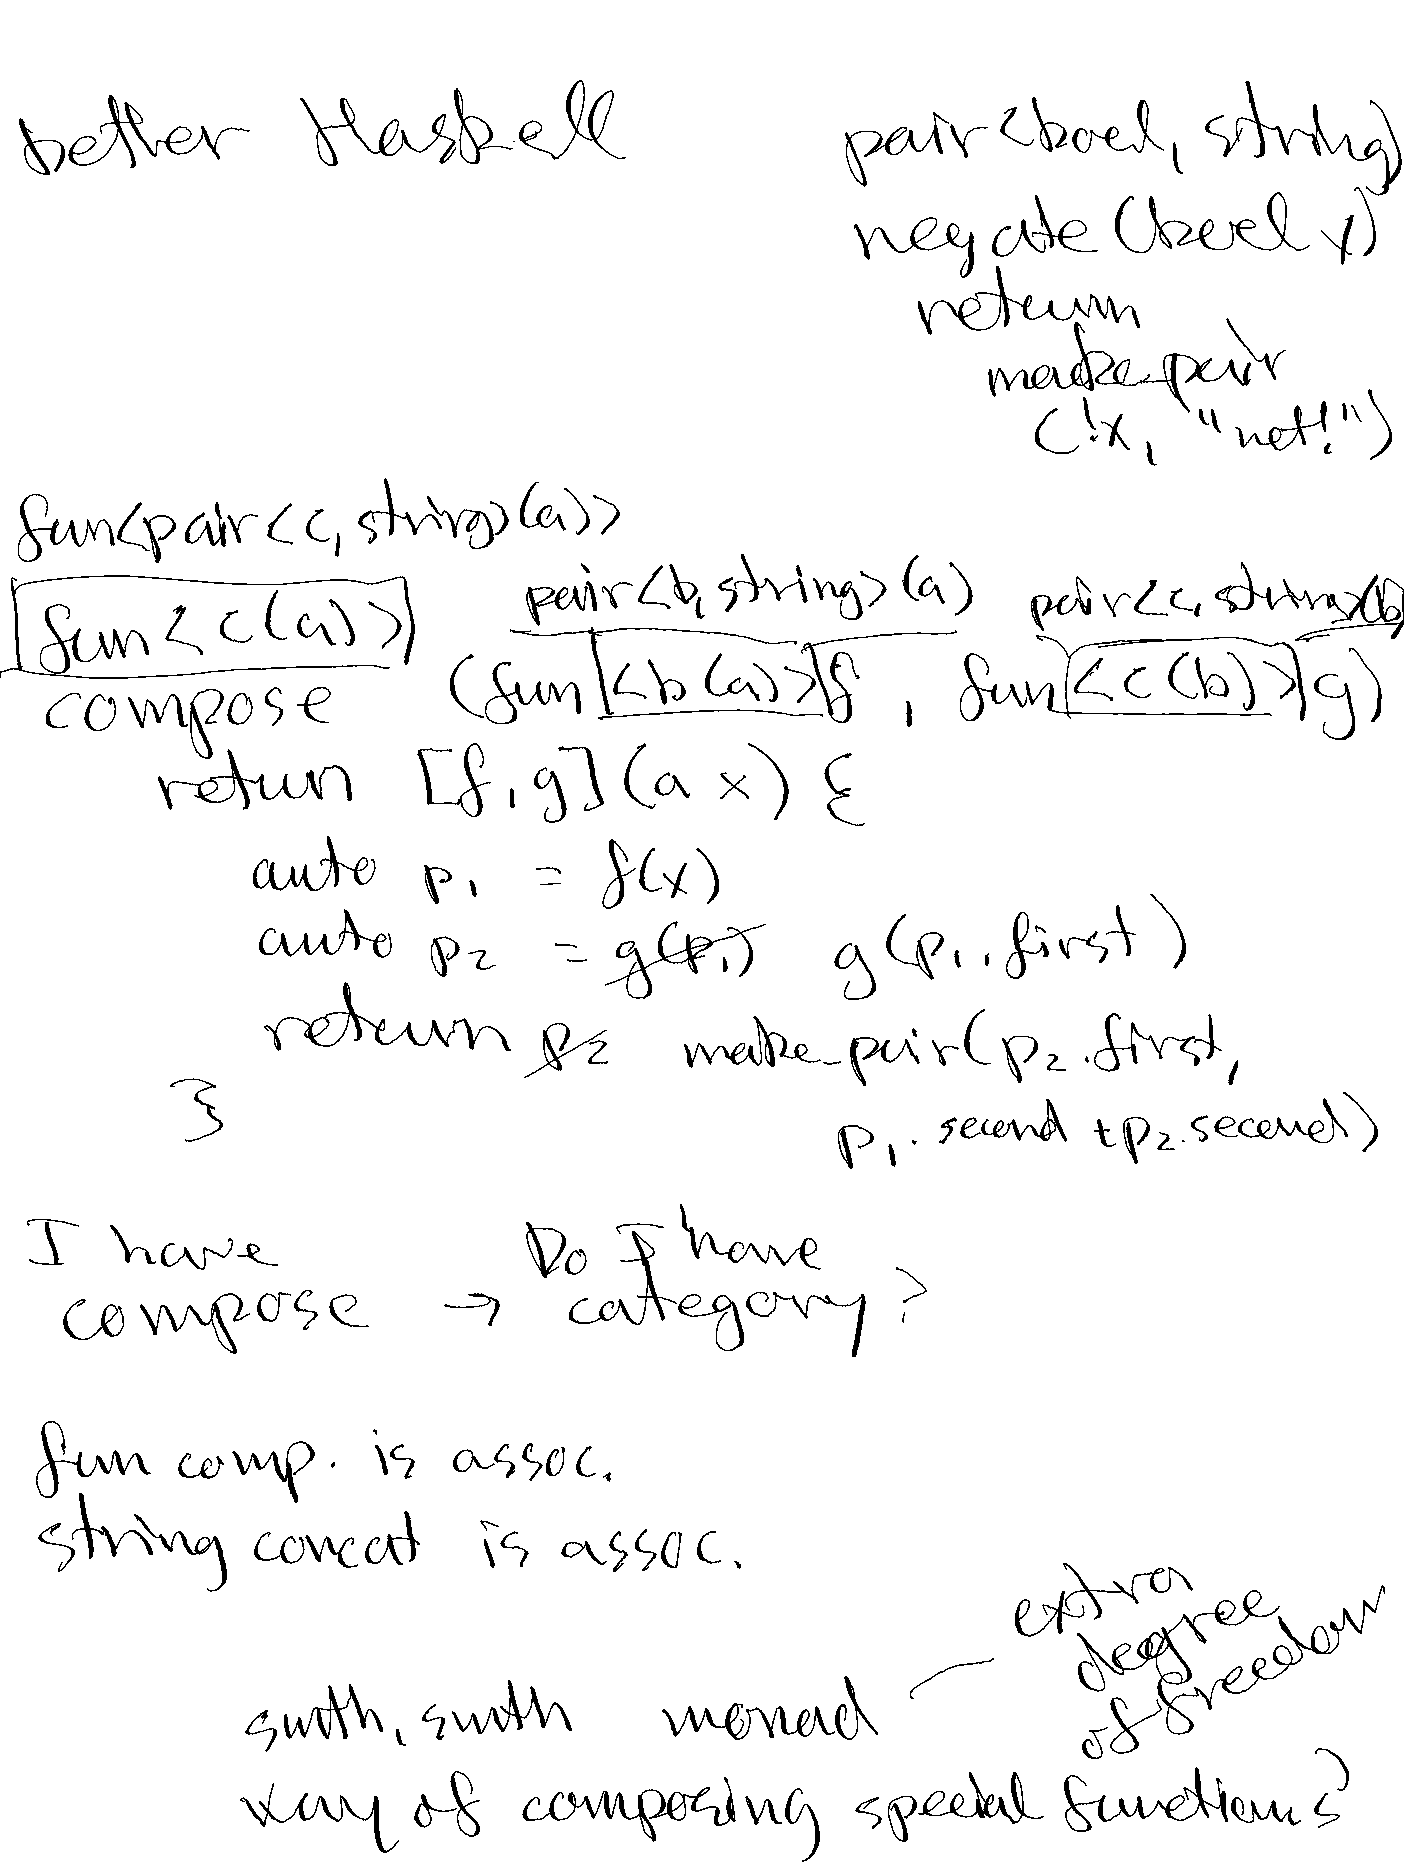 better Haskell
pair<bool, string>
negate (bool x)
return
make_pair
(!x, "not!")
fun<pair<c, string>(a)>
pair<b, string>(a) pair<c, string>(b)
fun<c(a)> (fun<b(a)>f, fun<c(b)>g)
compose
return [f, g](a x) {
auto p1 = f(x)
auto p2 = g(p1) g(p1.first)
return p2 make_pair(p2.first,
p1.second + p2.second)
}
I have Do I have
compose → category?
fun comp. is assoc.
string concat is assoc.
extra
degree
of freedom
smth, smth monad —
way of composing special functions